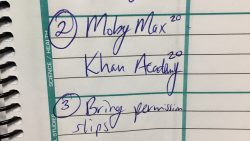 ② Moby Max 20
Khan Academy 20
③ Bring permission
slips
SCIENCE / HEALTH